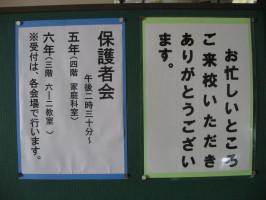 お忙しいところ
ご来校いただき
ありがとうござい
ます。
保護者会
午後二時三十分～
五年（四階　家庭科室）
六年（三階　六ー二教室　）
※受付は、各会場で行います。